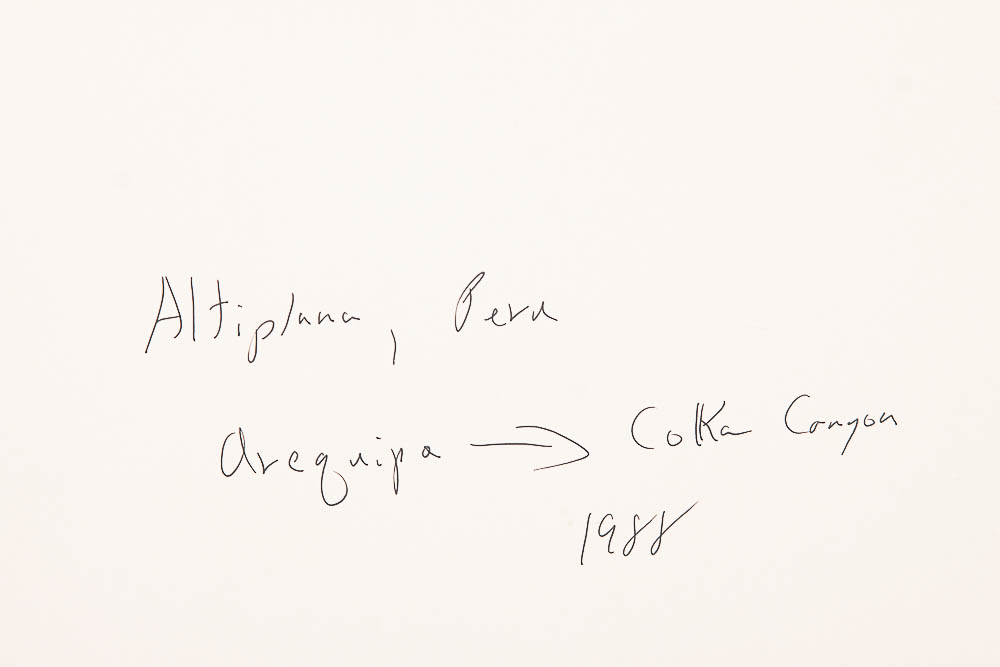 Altiplana, Peru
Arequipa → Colka Canyon
1988